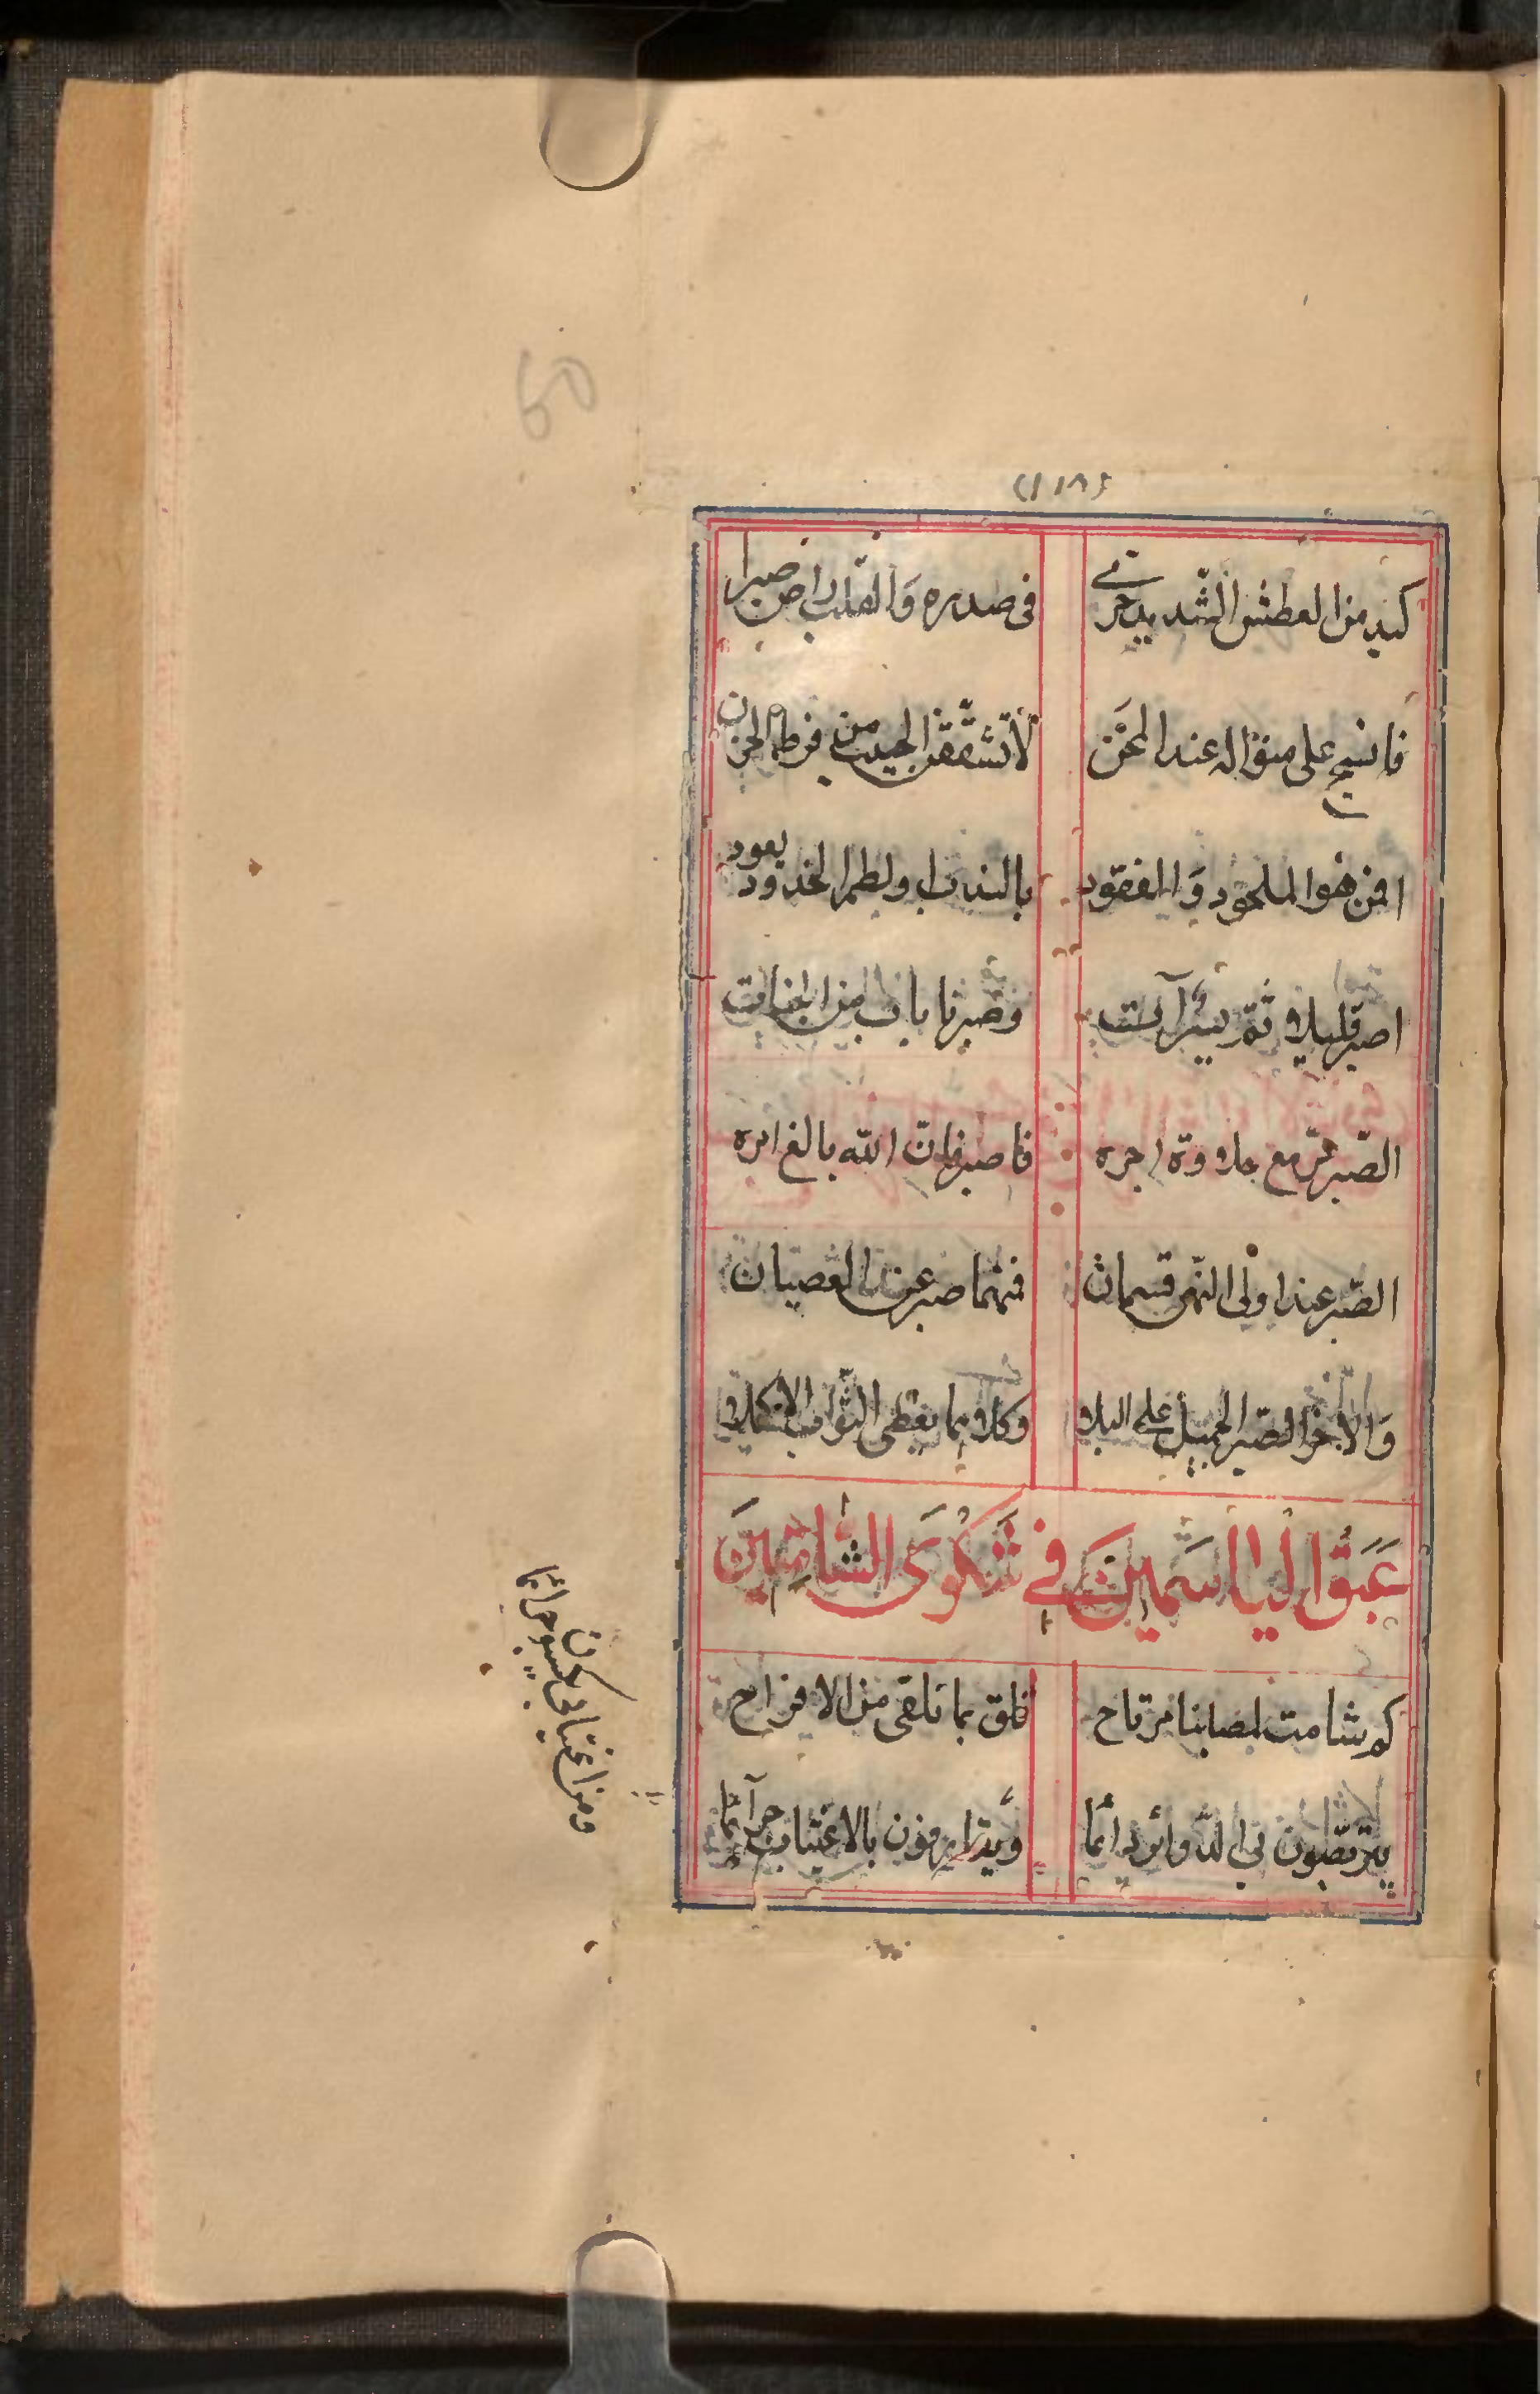 (١١٨)
كبد من العطش الشديد حرى في صدره والقلب راض صبرا
فانسج على منواله عند المحن لا تشققن الجيب من فرط الحزن
افمن هو الملحود والمفقود بالندب ولطم الخدود يعود
اصبر قليلا ثم يسر آت وصبرنا باب من الجنات
الصّبر مرّ مع حلاوة اجره فاصبر فان اللّه بالغ امره
الصّبر عند اولى النّهى قسمان فمنهما صبر عن العصيان
والآخر الصّبر الجميل على البلا وكلا هما يعطى الثّواب الاكملا
عَبَقُ اليَاسَمِين في شَكْوَى الشَّامِتِينَ
كم شامت لمصابنا مرتاح قلق بما نلقى من الافراح
يتربّصون بى الدّوائر دائما
ومن اغتيابى يكسبون جرائما